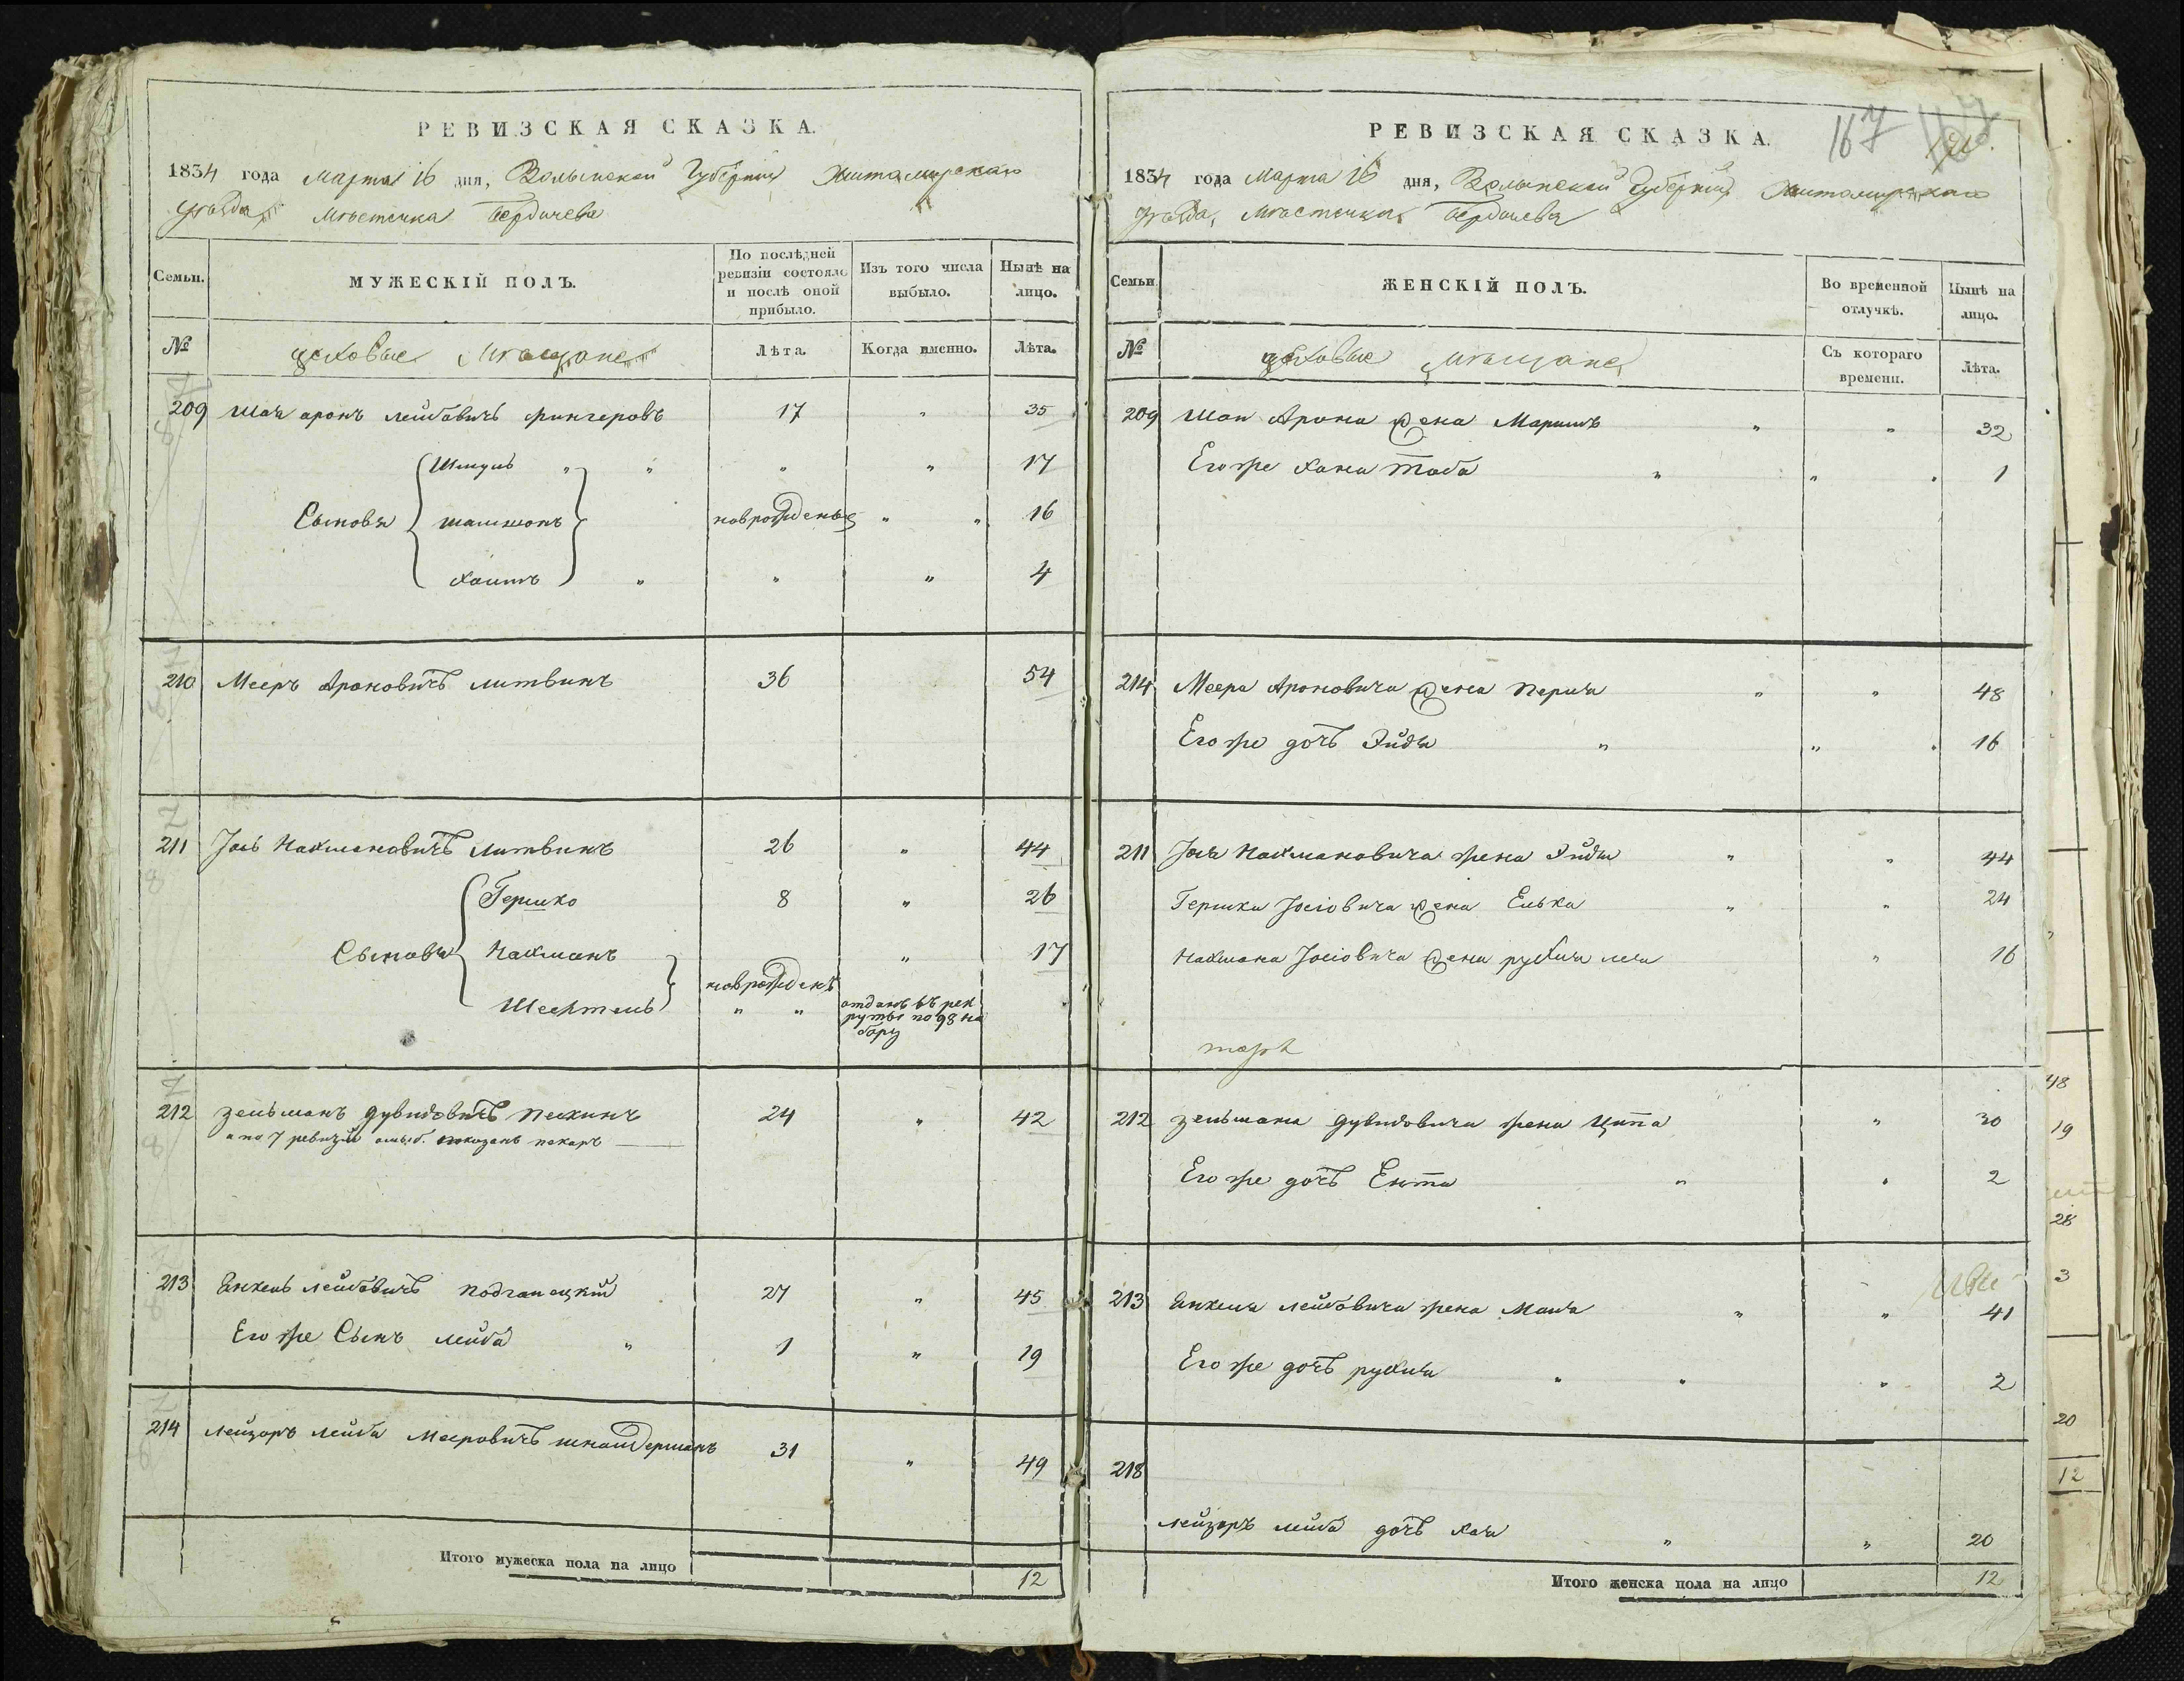 РЕВИЗСКАЯ СКАЗКА.
1834 года марта 16 дня, Волынской Губернии Житомирскаго
уезда, местечка Бердичева
Семьи.
МУЖЕСКІЙ ПОЛЪ.
По послѣдней ревизіи состояло и послѣ оной прибыло.
Изъ того числа выбыло.
Нынѣ на лицо.
№
цеховые мещане
Лѣта.
Когда именно.
Лѣта.
209 Шая аронъ лейбовичъ фингеровъ 17 " 35
Шмуль " " " " 17
Сыновя шамшонъ новрожденые " " 16
хаимъ " " " 4
210 Мееръ Ароновичъ литвинъ 36 54
211 Іось Нахмановичъ литвинъ 26 " 44
Гершко 8 " 26
Сыновя Нахманъ " 17
новрожденъ
Шехтель " " отданъ въ рек
руты по 98 на
бору
212 зельманъ дувидовичъ пескинъ 24 " 42
а по 7 ревизіи показанъ пекаръ
213 Янкель лейбовичъ подгаецкій 27 " 45
Его же Сынъ лейба " 1 " 19
214 лейзоръ лейба Мееровичъ шнайдерманъ 31 " 49
Итого мужеска пола на лицо 12
РЕВИЗСКАЯ СКАЗКА.
167
1834 года марта 16 дня, Волынской Губернии Житомирскаго
уезда, местечка Бердичева
Семьи
ЖЕНСКІЙ ПОЛЪ.
Во временной отлучкѣ.
Нынѣ на лицо.
№
цеховые мещане
Съ котораго времени.
Лѣта.
209 Шаи Арона жена Маримъ " " 32
Его же хана тоба " " " 1
214 Меера Ароновича жена перля " " 48
Его же дочъ Эйдя " " " 16
211 Іося Нахмановича жена Эйдя " " 44
Гершки Іосіовича жена Елька " " 24
Нахмана Іосіовича жена рухля леа " 16
212 зельмана дувидовича жена Ципа " 30
Его же дочъ Ента " " 2
213 Янкеля лейбовича жена Маля " " 41
Его же дочъ рухля " " " 2
218
лейзоръ лейба дочъ хая " " 20
Итого женска пола на лицо 12
48
19
28
3
20
12